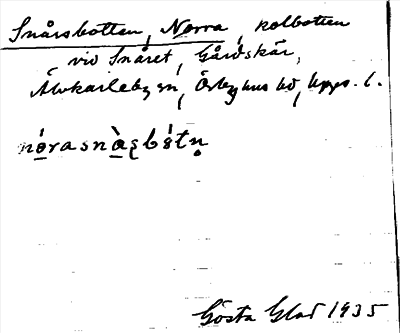 Snårsbotten, Norra, kolbotten
vid Snåret, Gårdskär,
Älvkarleby sn, Örbyhus hd, Upps. l.
Gösta Glad 1935